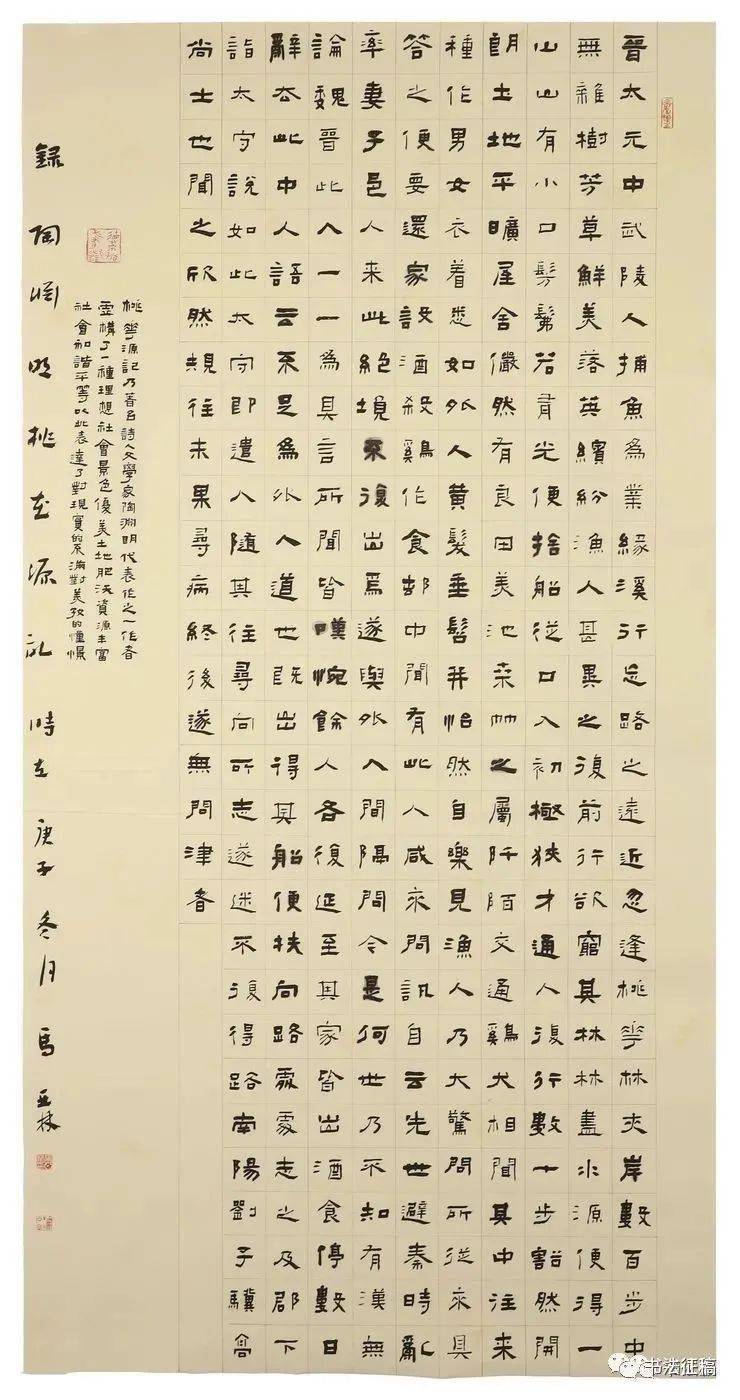 晉太元中武陵人捕魚為業緣溪行忘路之遠近忽逢桃華林夾岸數百步中
無雜樹芳草鮮美落英繽紛漁人甚異之復前行欲窮其林林盡水源便得一
山山有小口髣髴若有光便捨船從口入初極狹才通人復行數十步豁然開
朗土地平曠屋舍儼然有良田美池桑竹之屬阡陌交通鷄犬相聞其中往來
種作男女衣着悉如外人黃髮垂髫并怡然自樂見漁人乃大驚問所從來具
答之便要還家設酒殺鷄作食邨中聞有此人咸來問訊自云先世避秦時亂
率妻子邑人來此絕境不復出焉遂與外人間隔問今是何世乃不知有漢無
論魏晉此人一一為具言所聞皆嘆惋餘人各復延至其家皆出酒食停數日
辭去此中人語云不足為外人道也既出得其船便扶向路處處志之及郡下
詣太守說如此太守即遣人隨其往尋向所志遂迷不復得路南陽劉子驥高
尚士也聞之欣然規往未果尋病終後遂無問津者
桃華源記乃著名詩人文學家陶淵明代表作之一作者
虛構了一種理想社會景色優美土地肥沃資源丰富
社會和諧平等以此表達了對現實的不滿對美好的憧憬
錄陶淵明桃花源記 時在庚子冬月 馬亚林
书法征稿